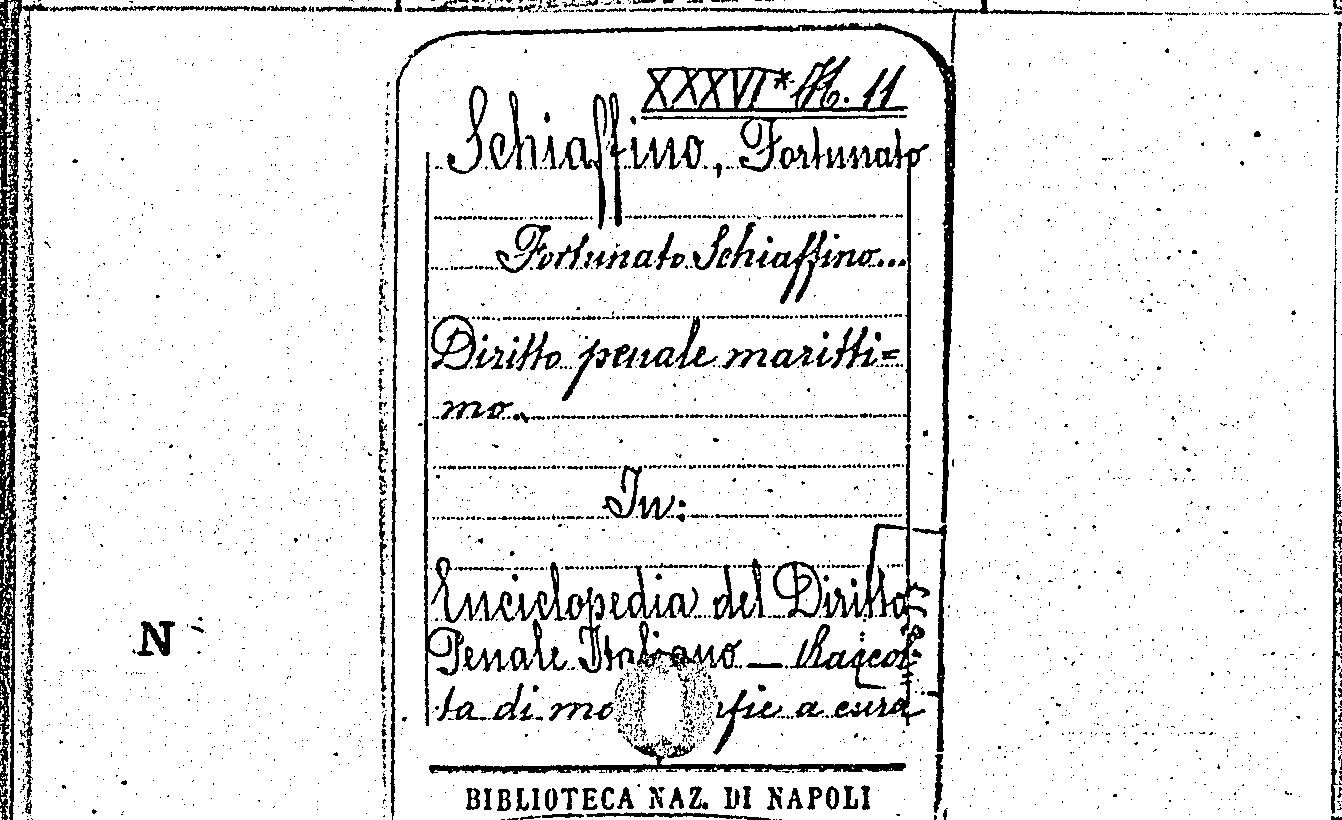 XXXVI* H. 11
Schiaffino, Fortunato
Fortunato Schiaffino...
Diritto penale maritti=
mo.
In:
Enciclopedia del Diritto
Penale Italiano — Raccol-
ta di mo fie a cura
N
BIBLIOTECA NAZ. DI NAPOLI